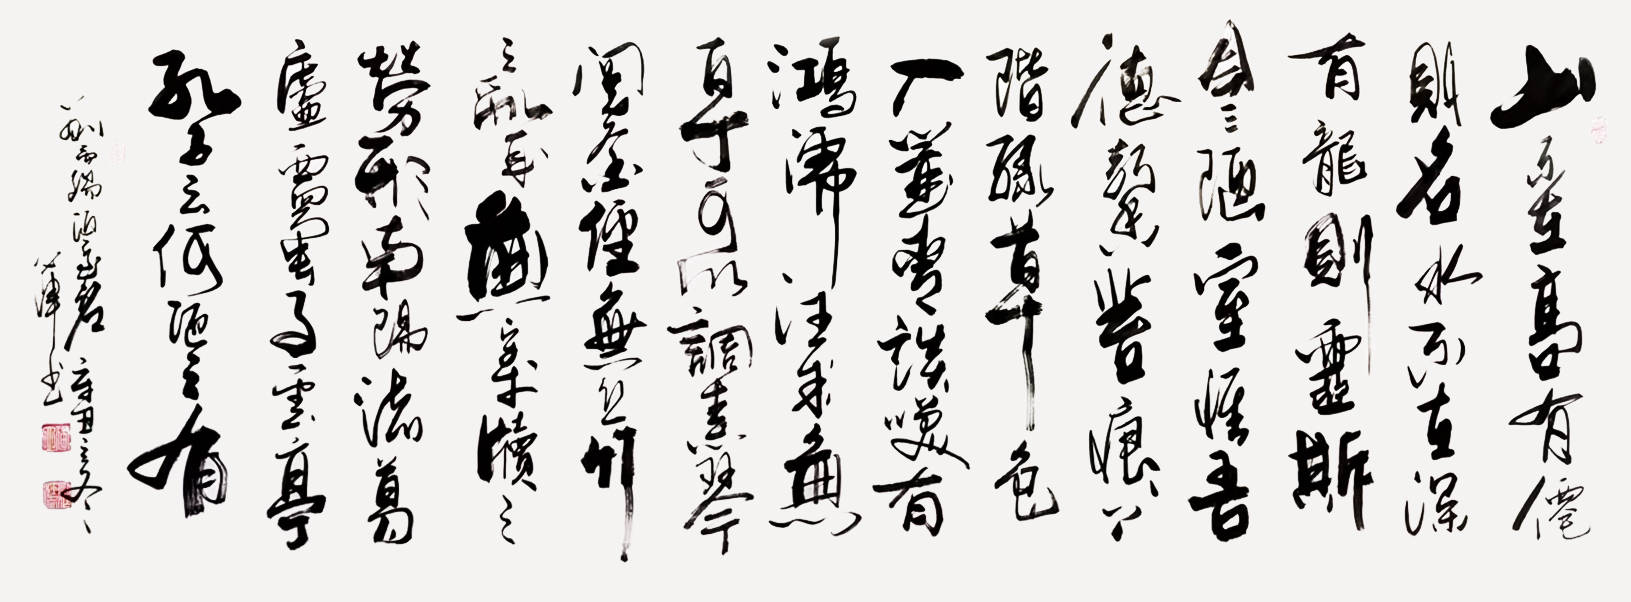 山不在高有僊
則名水不在深
有龍則靈斯
是陋室惟吾
德馨苔痕上
階綠草色
入簾青談笑有
鴻儒往來無
白丁可以調素琴
閱金經無絲竹
之亂耳無案牘之
勞形南陽諸葛
廬西蜀子雲亭
孔子云何陋之有
劉禹錫陋室銘辛丑之冬
書